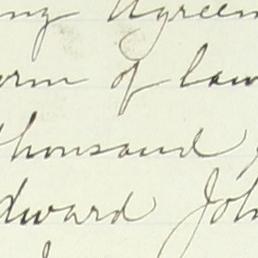 ng Agreem
orm of law
thousand
dward Joh